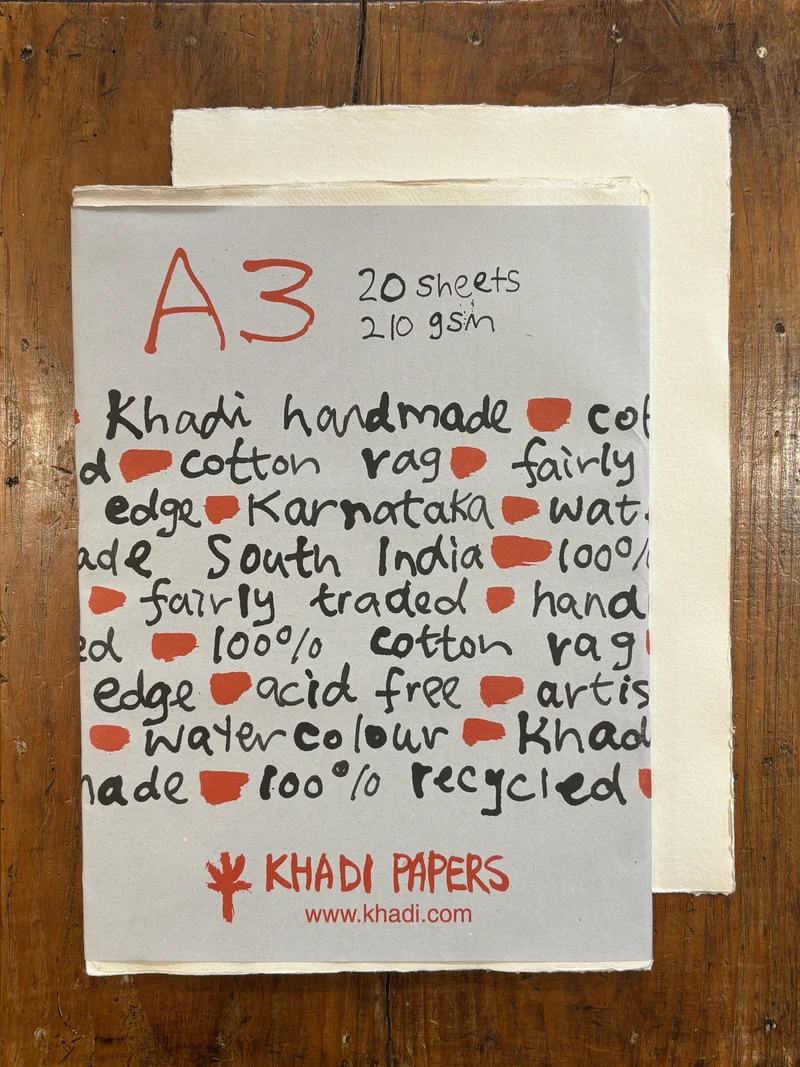 A3
20 sheets
210 gsm
Khadi handmade cot
d cotton rag fairly
edge Karnataka wat
ade South India 100%
fairly traded hand
ed 100% cotton rag
edge acid free artis
watercolour Khad
made 100% recycled
KHADI PAPERS
www.khadi.com